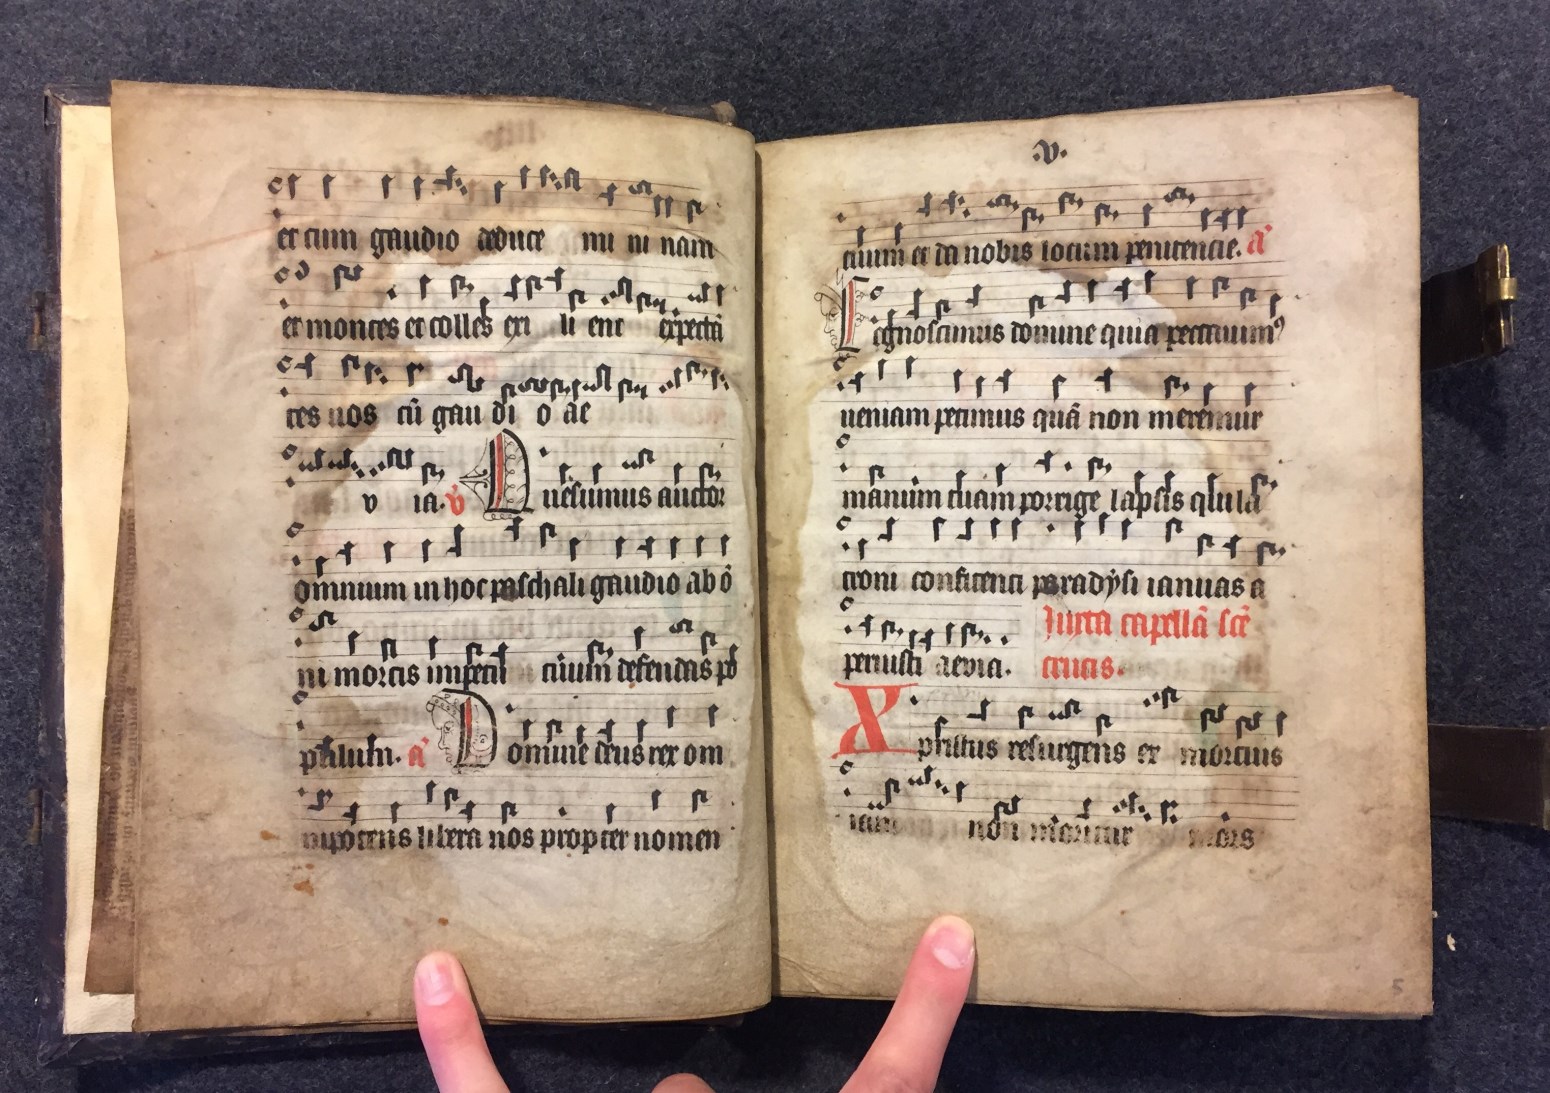 et cum gaudio deduce mi ni nam
et montes et colles exi li ent expectā
tes uos cū gau di o ae
v ia. v Quesumus auctor
omnium in hoc paschali gaudio ab ō
ni mortis impetu tuum defendas po
pulum. a Domine deus rex om
nipotens libera nos propter nomen
.v.
tuum et da nobis locum penitencie. a
cognoscimus domine quia peccauimꝰ
ueniam petimus quā non meremur
manum tuam porrige lapsis qui la
troni confitenti paradysi ianuas a
peruisti aeuia. Iuxta capellā scē
crucis.
Xpistus resurgens ex mortuis
iam non moritur mors
5